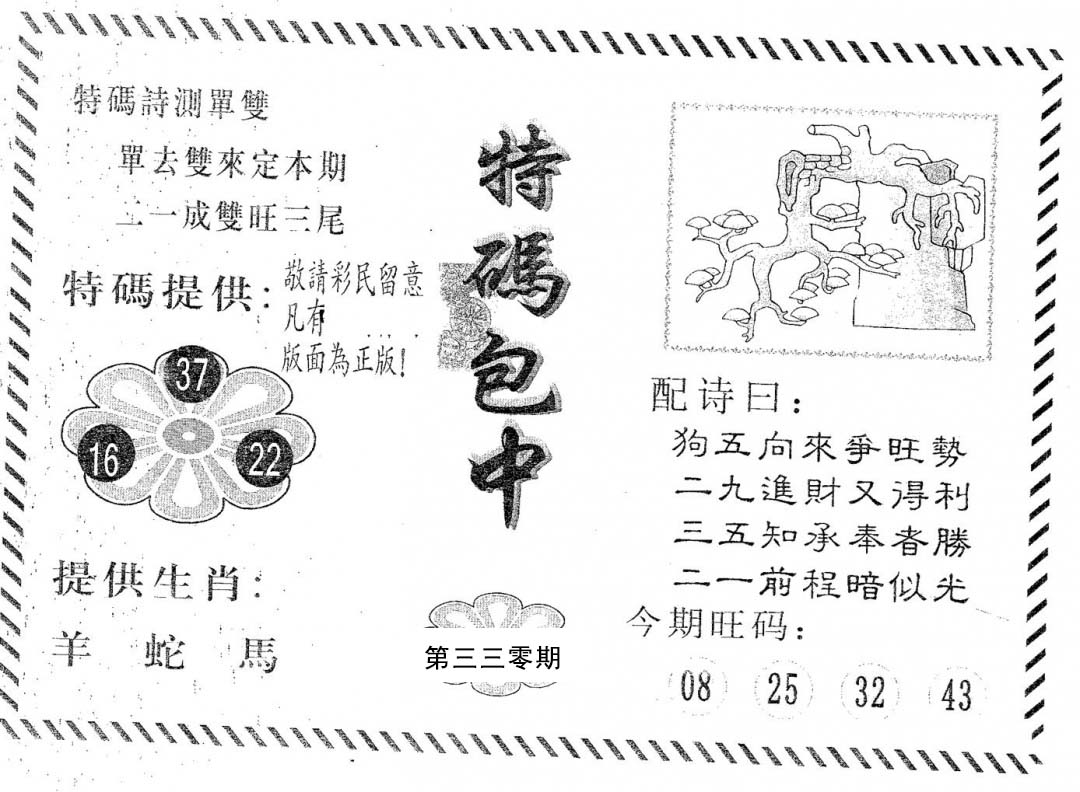 特碼詩測單雙
單去雙來定本期
二一成雙旺三尾
特碼提供：
敬請彩民留意
凡有
版面為正版!
37
16
22
提供生肖：
羊 蛇 馬
特碼包中
第三三零期
配诗曰：
狗五向來爭旺勢
二九進財又得利
三五知承奉者勝
二一前程暗似光
今期旺码：
08 25 32 43